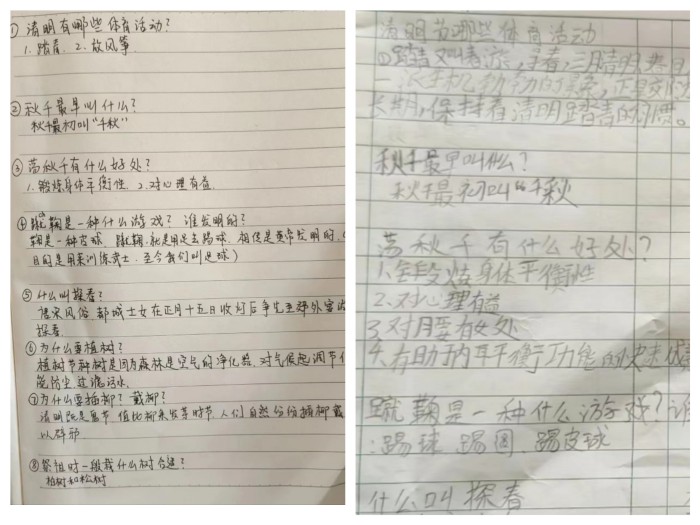 ① 清明有哪些体育活动?
1. 踏青. 2. 放风筝
② 秋千最早叫什么?
秋千最初叫“千秋”
③ 荡秋千有什么好处?
1. 锻炼身体平衡性. 2. 对心理有益.
④ 蹴鞠是一种什么游戏? 谁发明的?
鞠是一种古球. 蹴鞠就是用足去踢球. 相传是黄帝发明的.
目的是用来训练武士. 至今我们叫足球)
⑤ 什么叫探春?
唐宋风俗 都城士女在正月十五日收灯后争先至郊外宴
探春
⑥ 为什么要植树?
植树节种树是因为森林是空气的净化器. 对气候起调节
能防尘.过滤污水.
⑦ 为什么要插柳? 戴柳?
清明既是鬼节. 值此柳条发芽时节. 人们自然纷纷插柳戴
以辟邪
⑧ 祭祖时一般栽什么树合适?
柏树和松树
清明节哪些体育活动
踏青又叫春游, 寻春, 三月清明, 春回
一派生机勃勃的景象, 正是
长期, 保持着清明踏青的习惯。
秋千最早叫什么?
秋千最初叫“千秋
荡秋千有什么好处?
1. 锻炼身体平衡性
2. 对心理有益
3 对腰有好处
4. 有助于内耳平衡功能的快速
蹴鞠是一种什么游戏? 谁
:踢球 踢圆、踢皮球
什么叫探春